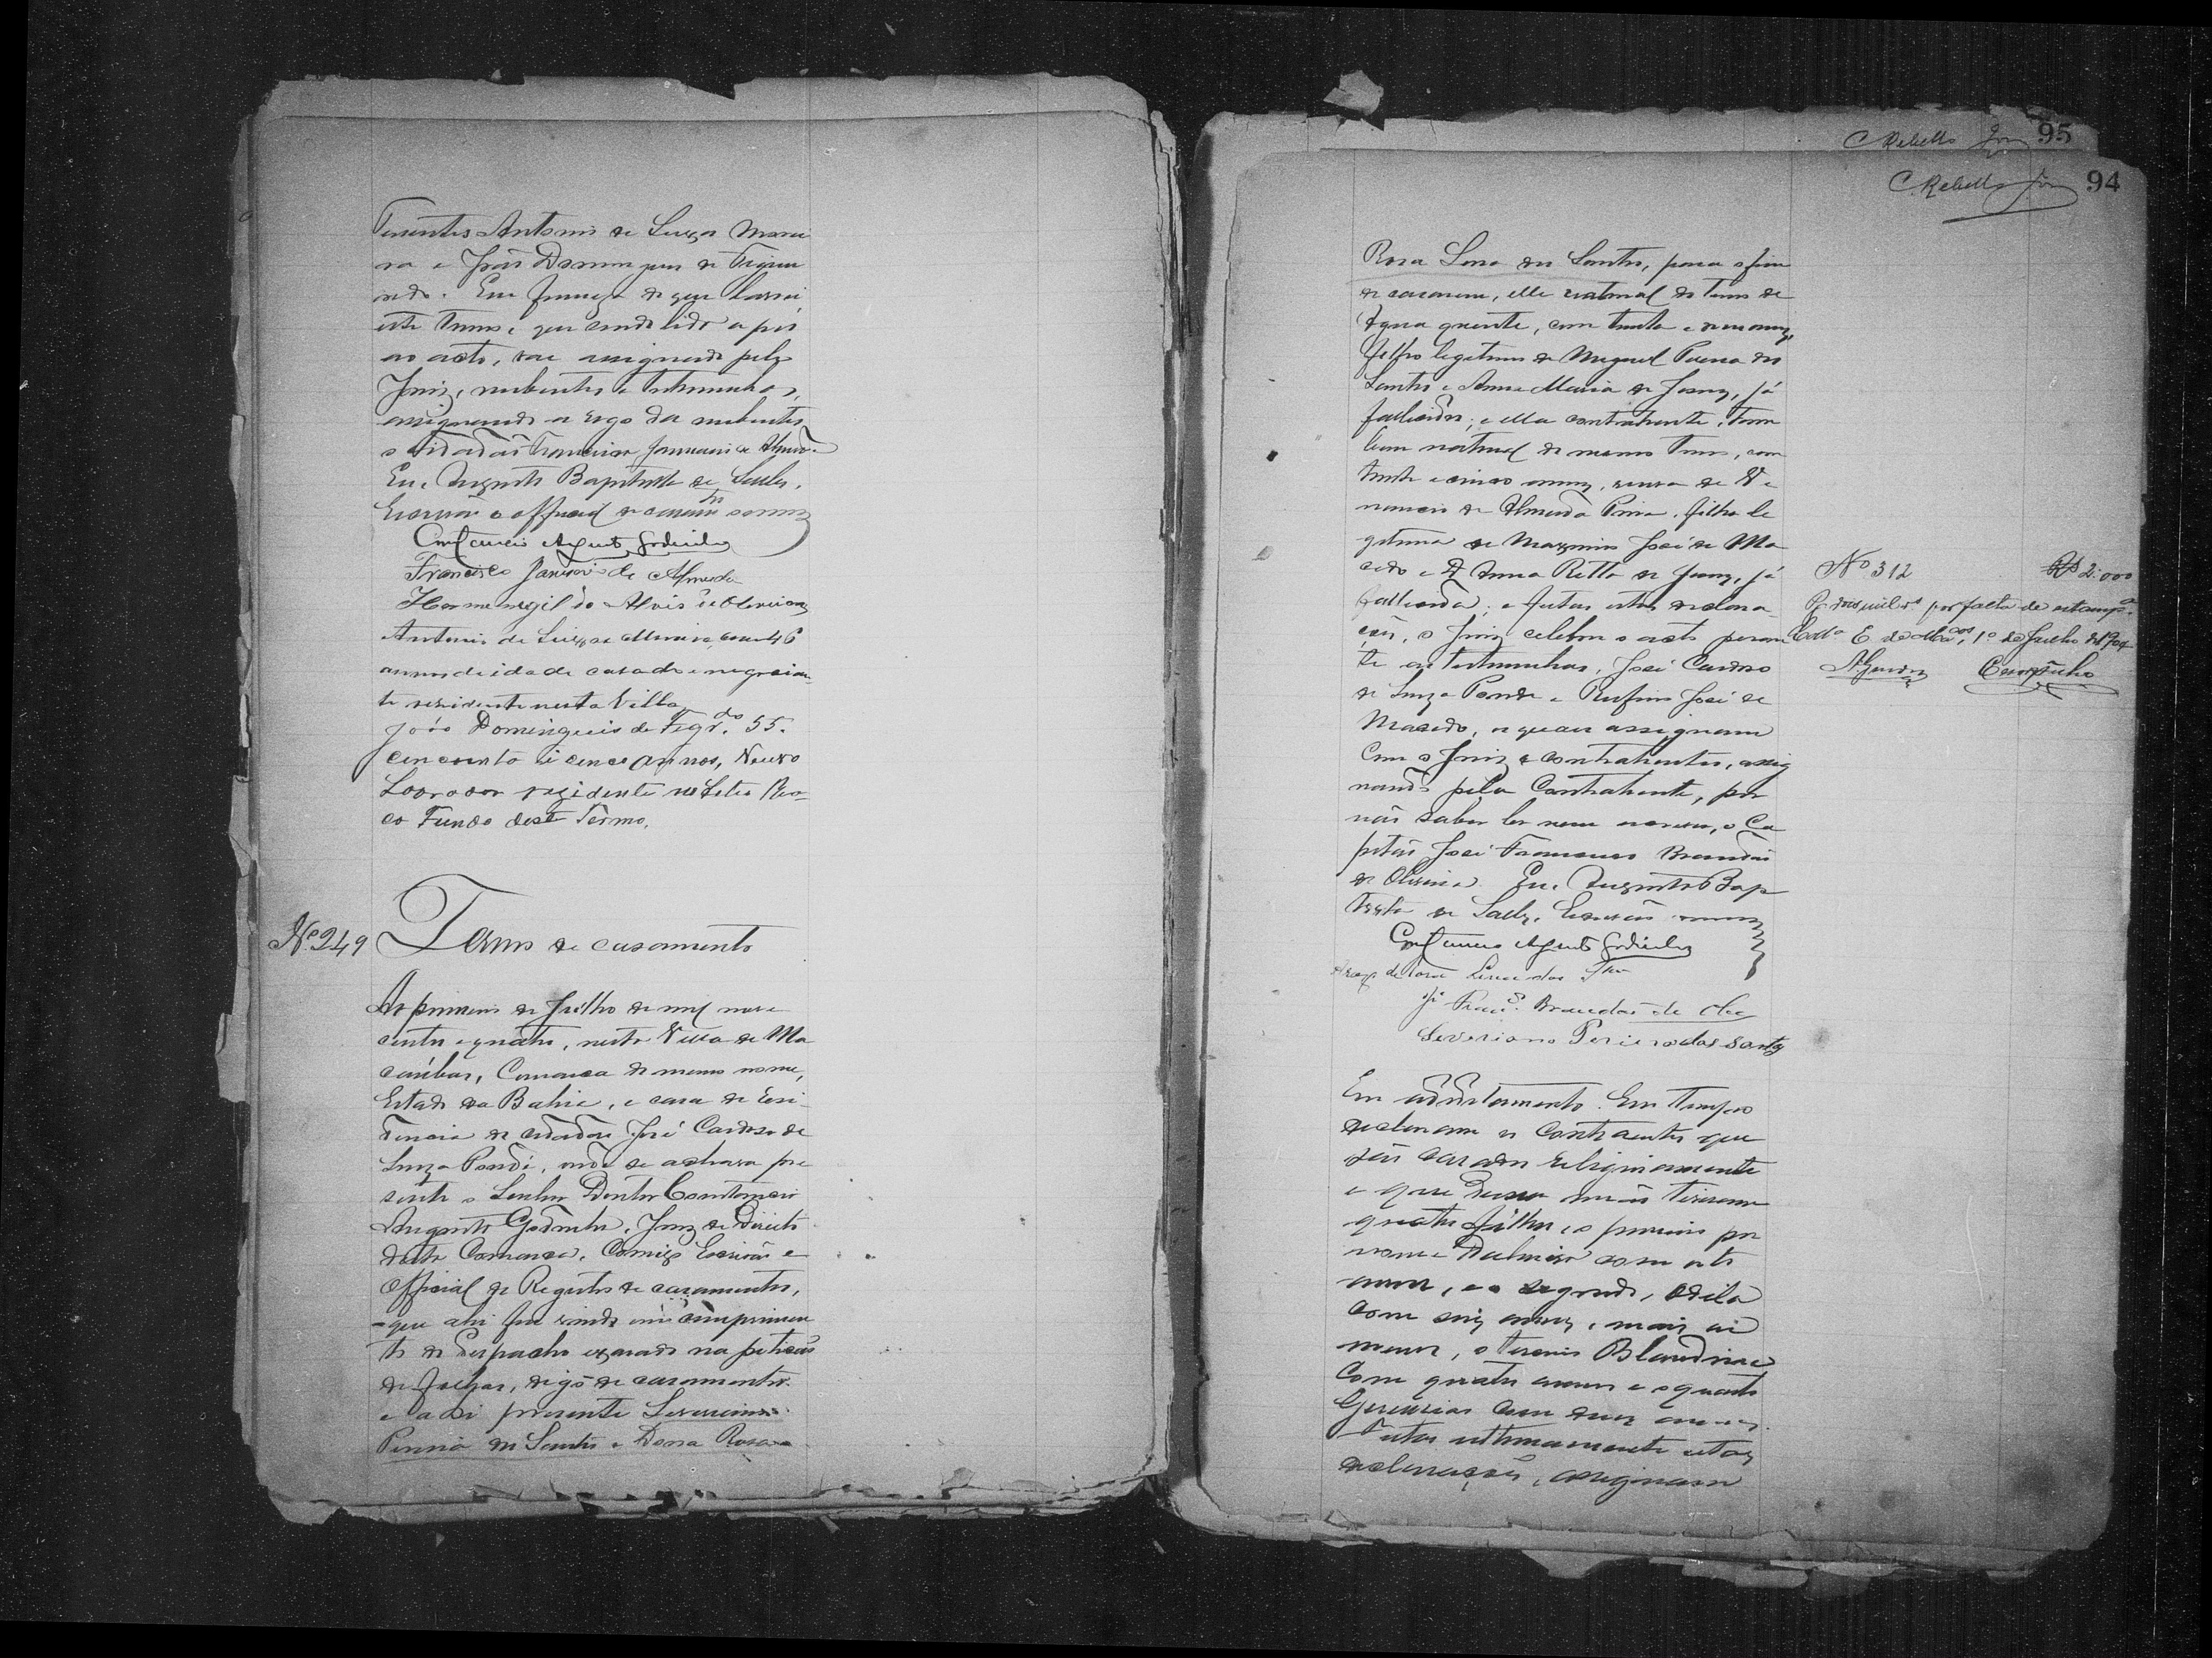 Tenentes Antonio de Souza Morei
ra e João Domingues de Figuei
redo. Em firmeza do que lavrei
este termo, que sendo lido a pos
ao acto, vae assignado pelo
Juiz, nubentes e testemunhas,
assignando a rogo da nubente
o cidadão Francisco Januario de Almeida
Eu, Augusto Baptista de Salles,
Escrivão e official de casamentos
Constancio Augusto Godinho
Francisco Januario de Almeida
Hermenegildo Alvis de
Antonio de Suiza Moreira, com 46
annos de idade casado e negocian
te residente nesta Villa
João Domingueis de Figrdo. 55.
cencoenta i cenco annos, Neuvo
Lavrador rezidente no Setio
co Fundo deste Termo.
Nº 249 Termo de casamento
Ao primeiro de Julho de mil nove
centos e quatro, nesta Villa de Ma
caúbas, Comarca do mesmo nome,
Estado da Bahia, e casa de resi
dencia do cidadão José Cardoso de
Souza Pondé, onde se achava pre
sente o Senhor Doutor Constancio
Augusto Godinho, Juiz de Direito
desta Comarca, Comigo Escrivão e
Official do Registro de casamentos,
que ahi fui vindo em cumprimen
to do despacho exarado na petição
de folhas, digo de casamento
e ahi presente Severiano
Pereira dos Santos e Dona Rosa
95
C. Rebello Jor
94
C. Rebello Jor
Rosa dos Santos, para o fim
de casarem, elle natural do termo de
Agua quente, com trinta e annos,
filho legitimo de Miguel Pereira dos
Santos e Anna Maria de Jesus, já
fallecidos; e ella contrahente, tam
bem natural do mesmo termo, com
trinta e cinco annos, viuva de Ve
nancio de Almeida, filha le
gitima de Maximino José de Ma
cedo e D. Anna Ritta de Jesus, já
fallecida; e feitas estas declara
ções, o Juiz celebrou o acto peran
te as testemunhas, José Cardoso
de Souza Pondé e Rufino José de
Macedo, os quaes assignam
com o Juiz e contrahentes, assig
nando pela Contrahente, por
não saber ler nem escrever, o Ca
pitão José Francisco Brandão
de Oliveira. Eu, Augusto Bap
tista de Salles, Escrivão
Constancio Augusto Godinho
Jé Franco. Brandão de Olia
Severiano Perieradas Santos
Nº 312 Rs 2.000
Pg. dois mil rs. por falta de estampa.
1º de Julho de 1904
Em additamento. Em tempo
declaram os Contraentes que
são casados religiosamente
e que dessa união tiveram
quatro filhos, o primeiro por
nome com oito
annos, e o segundo, Odila
com seis annos, mais ou
menos, o terceiro Blandina
com quatro annos e o quarto
com dous annos.
Feitas ultimamente estas
declarações, assignam